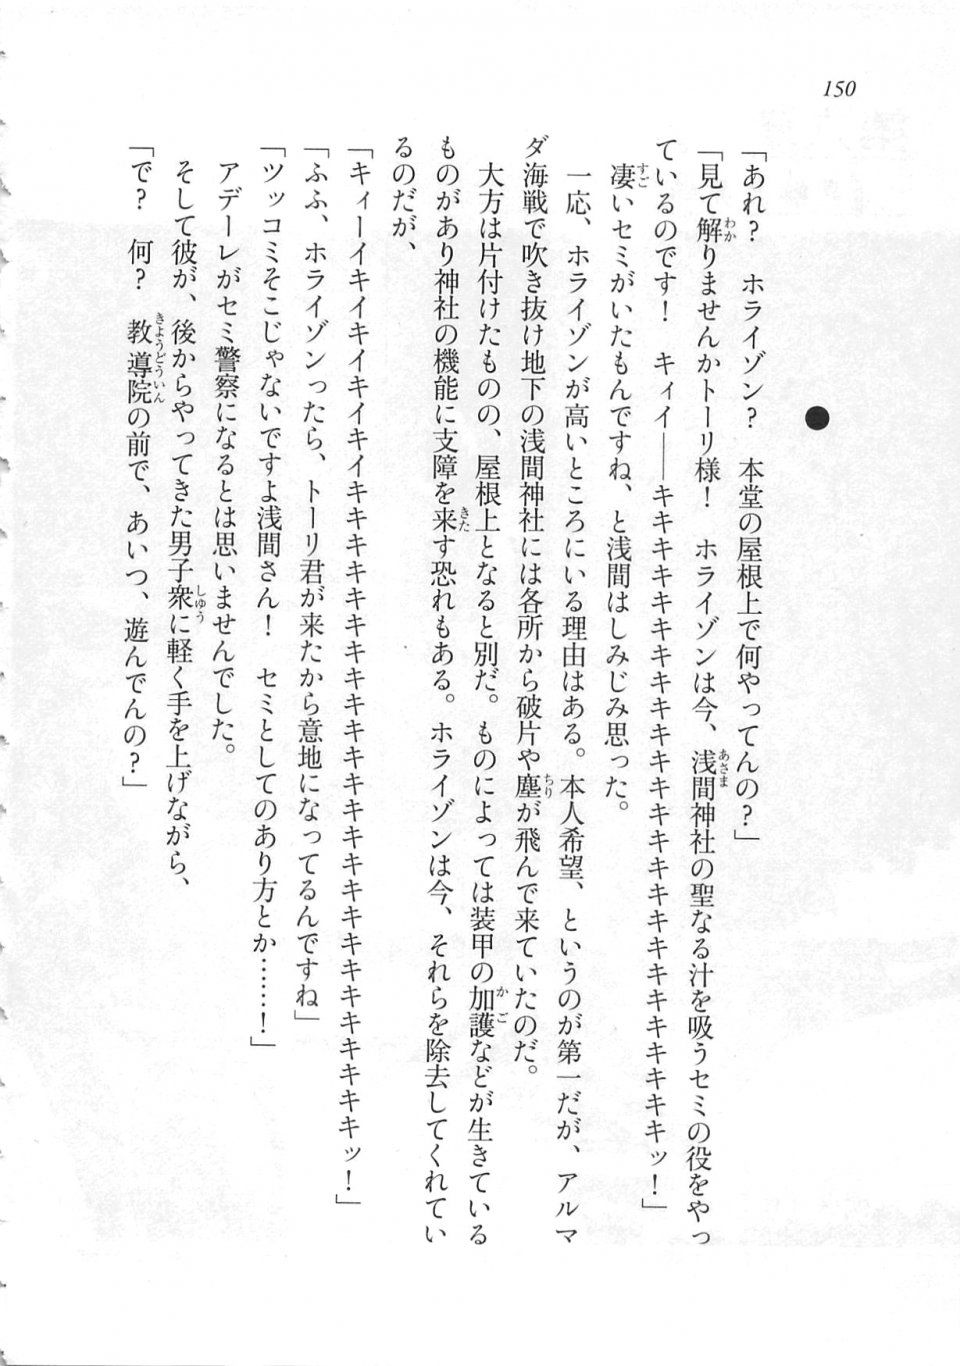 150
●
「あれ？　ホライゾン？　本堂の屋根上で何やってんの？」
「見て解りませんかトーリ様！　ホライゾンは今、浅間神社の聖なる汁を吸うセミの役をやっ
ているのです！　キィイ――キキキキキキキキキキキキキキキキキキキキキキキキキッ！」
　凄いセミがいたもんですね、と浅間はしみじみ思った。
　一応、ホライゾンが高いところにいる理由はある。本人希望、というのが第一だが、アルマ
ダ海戦で吹き抜け地下の浅間神社には各所から破片や塵が飛んで来ていたのだ。
　大方は片付けたものの、屋根上となると別だ。ものによっては装甲の加護などが生きている
ものがあり神社の機能に支障を来す恐れもある。ホライゾンは今、それらを除去してくれてい
るのだが、
「キィーイキイキイキイキイキキキキキキキキキキキキキキキキキキキキキキキキッ！」
「ふふ、ホライゾンったら、トーリ君が来たから意地になってるんですね」
「ツッコミそこじゃないですよ浅間さん！　セミとしてのあり方とか……！」
　アデーレがセミ警察になるとは思いませんでした。
　そして彼が、後からやってきた男子衆に軽く手を上げながら、
「で？　何？　教導院の前で、あいつ、遊んでんの？」